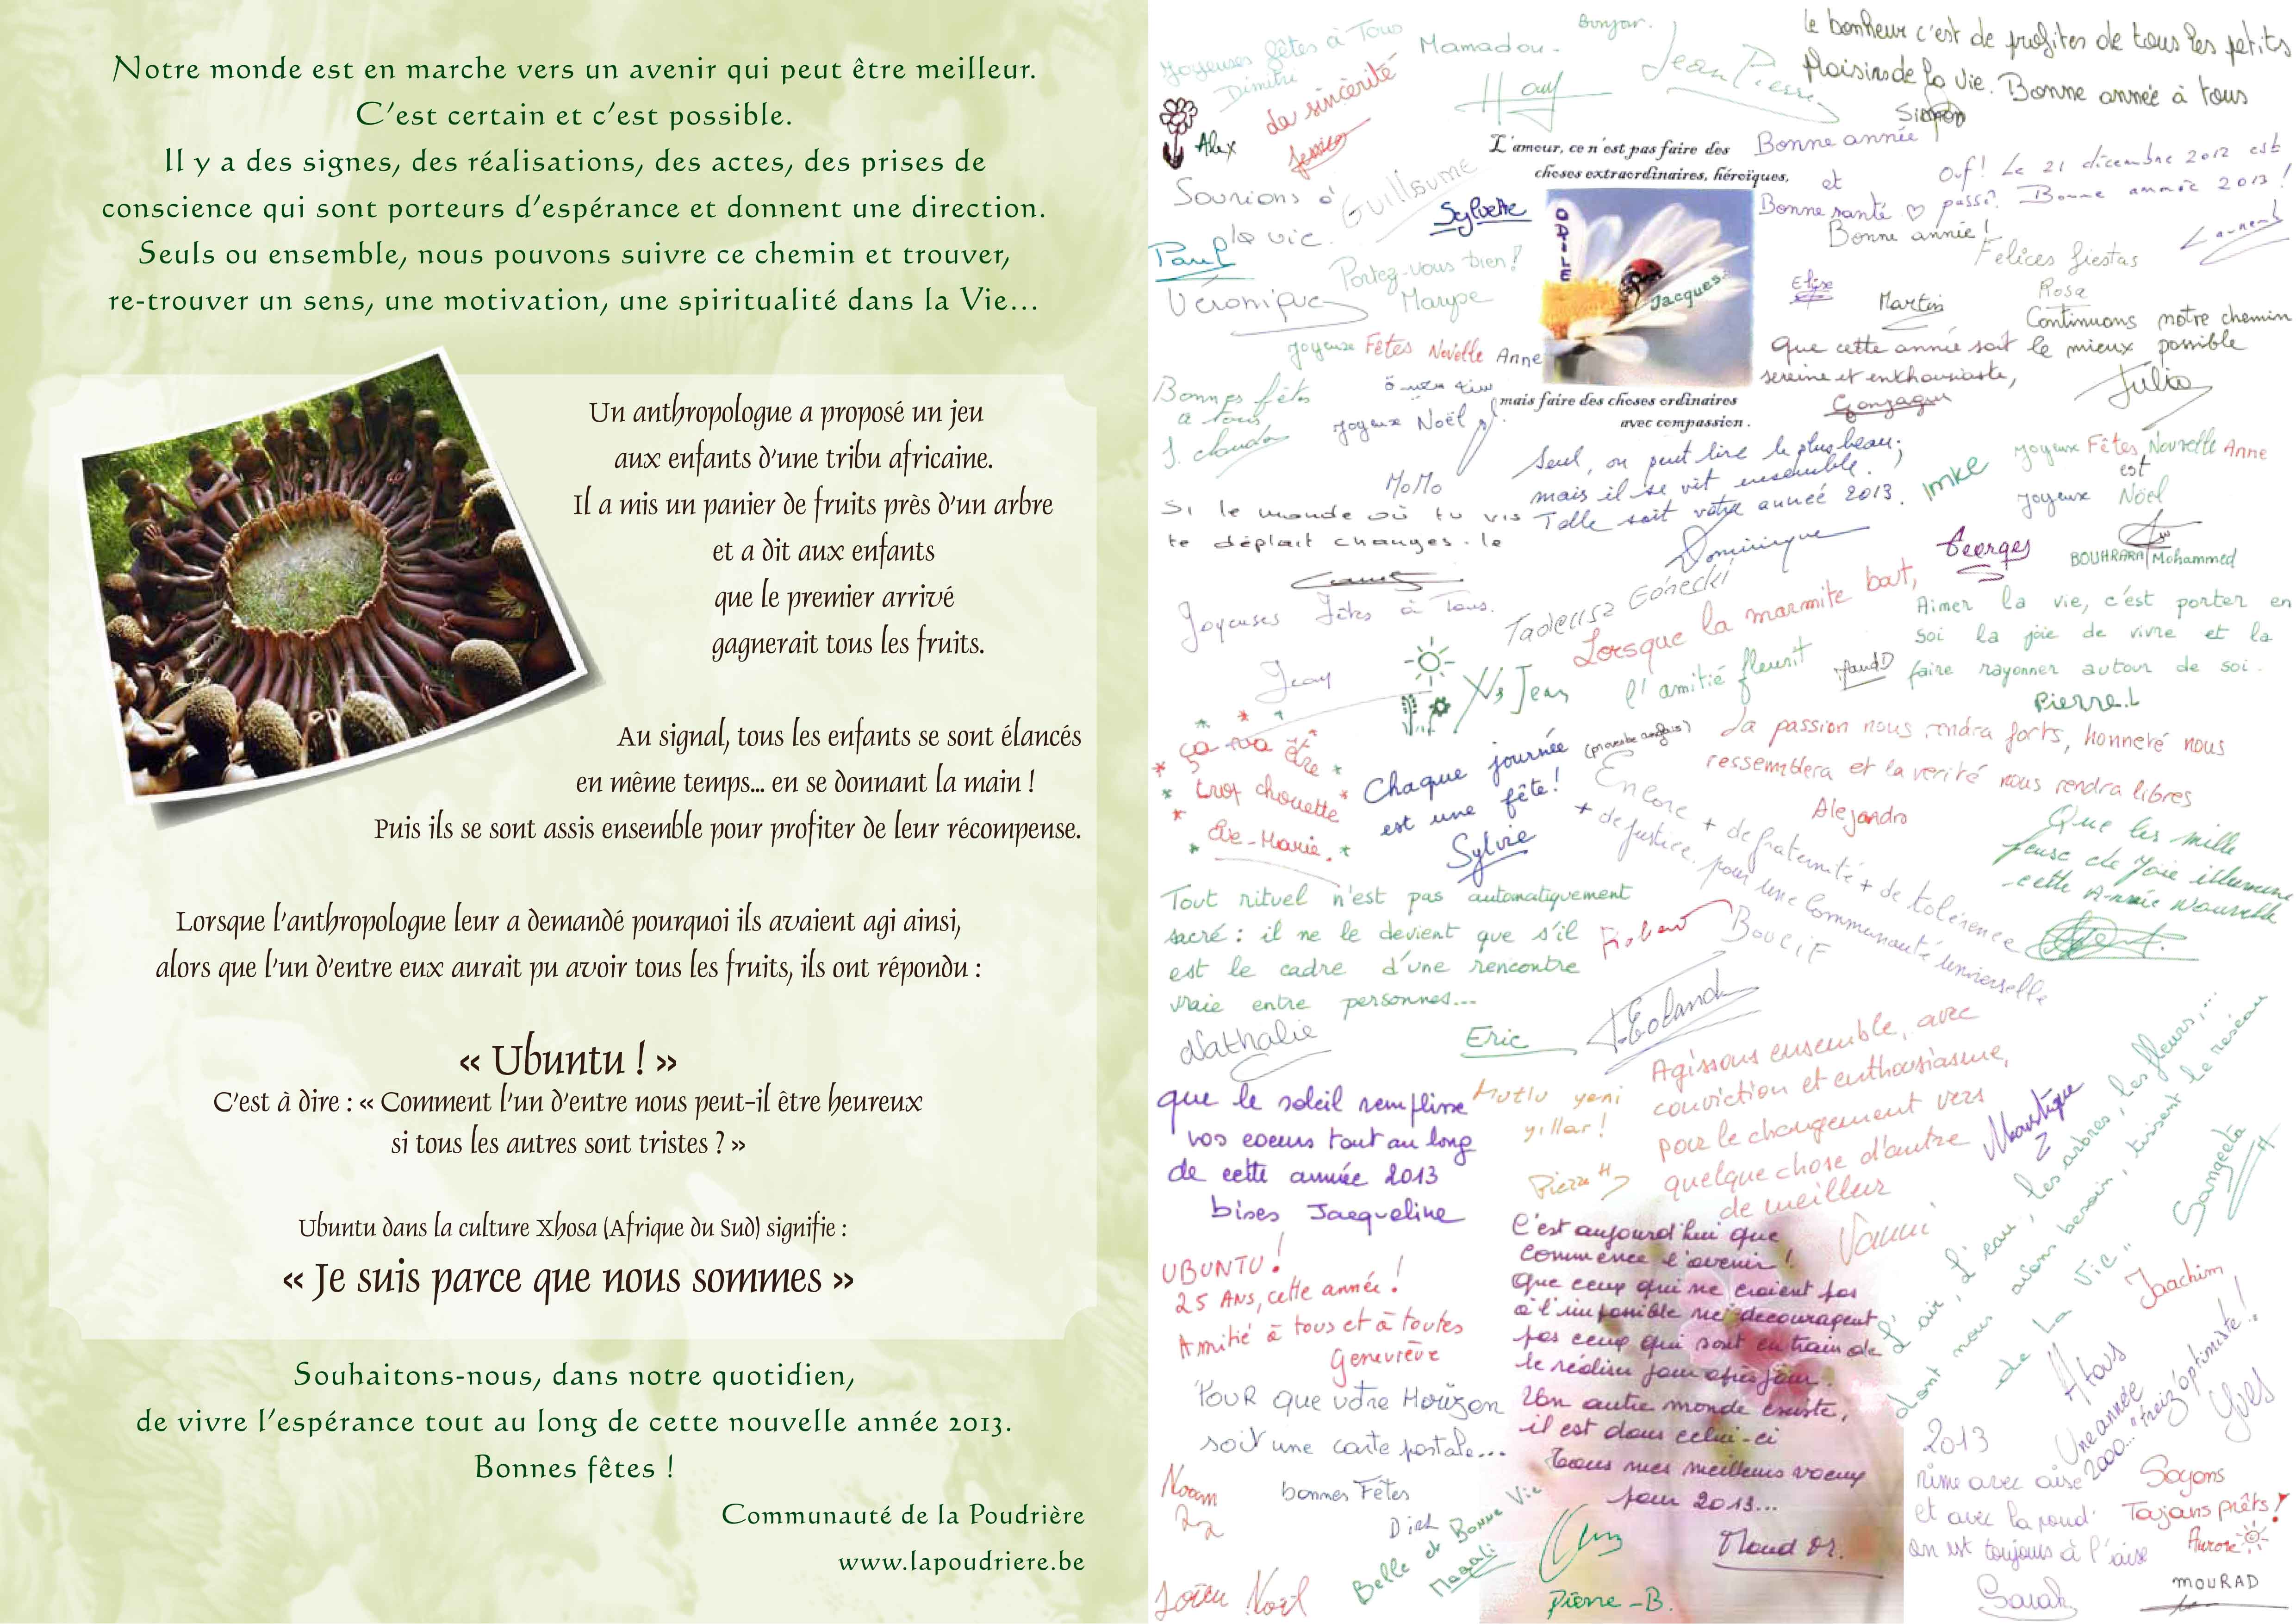 Notre monde est en marche vers un avenir qui peut être meilleur.
C'est certain et c'est possible.
Il y a des signes, des réalisations, des actes, des prises de
conscience qui sont porteurs d'espérance et donnent une direction.
Seuls ou ensemble, nous pouvons suivre ce chemin et trouver,
re-trouver un sens, une motivation, une spiritualité dans la Vie...
Un anthropologue a proposé un jeu
aux enfants d'une tribu africaine.
Il a mis un panier de fruits près d'un arbre
et a dit aux enfants
que le premier arrivé
gagnerait tous les fruits.
Au signal, tous les enfants se sont élancés
en même temps... en se donnant la main !
Puis ils se sont assis ensemble pour profiter de leur récompense.
Lorsque l'anthropologue leur a demandé pourquoi ils avaient agi ainsi,
alors que l'un d'entre eux aurait pu avoir tous les fruits, ils ont répondu :
« Ubuntu ! »
C'est à dire : « Comment l'un d'entre nous peut-il être heureux
si tous les autres sont tristes ? »
Ubuntu dans la culture Xhosa (Afrique du Sud) signifie :
« Je suis parce que nous sommes »
Souhaitons-nous, dans notre quotidien,
de vivre l'espérance tout au long de cette nouvelle année 2013.
Bonnes fêtes !
Communauté de la Poudrière
www.lapoudriere.be
Joyeuses fêtes à Tous
Dimitri
Mamadou
Bonjour.
Jean Pierre
Le bonheur c'est de profiter de tous les petits
plaisirs de la vie. Bonne année à tous
Simon
Alex
La sincérité
Jessica
L'amour, ce n'est pas faire des
choses extraordinaires, héroïques,
ODILE
Jacques
mais faire des choses ordinaires
avec compassion.
Bonne année
et
Bonne santé
Bonne année !
Ouf ! Le 21 décembre 2012 est
passé. Bonne année 2013 !
Laurent
Sourions à
la vie.
Guillaume
Sylvette
Paul
Véronique
Portez-vous bien !
Felices fiestas
Rosa
Martin
Continuons notre chemin
le mieux possible
Julia
Que cette année soit
sereine et enthousiaste,
Gonzague
Joyeuse Fêtes Novelle Anne
Joyeux Noël
Bonnes fêtes
à tous
J. Claude
MoMo
Si le monde où tu vis
te déplait changes-le
Seul, on peut lire le plus beau,
mais il se vit ensemble.
Telle soit votre année 2013.
Dominique
Imke
Joyeux Fêtes Nouvelle Anne
est
Joyeux Noël
BOUHRARA Mohammed
Georges
Joyeuses Fêtes à Tous.
Jean
Tadeusz Górecki
Lorsque la marmite bout,
l'amitié fleurit
(proverbe anglais)
Maud D
Aimer la vie, c'est porter en
soi la joie de vivre et la
faire rayonner autour de soi.
Pierre.L
ça va être
trop chouette
Eve-Marie.
Chaque journée
est une fête !
Sylvie
La passion nous rendra forts, honneté nous
ressemblera et la verité nous rendra libres
Alejandro
Encore + de fraternité + de tolérence
+ de justice. pour une Communauté universelle
Boulif
Que les mille
feuse de joie illumine
cette Année Nouvelle
Tout rituel n'est pas automatiquement
sacré : il ne le devient que s'il
est le cadre d'une rencontre
vraie entre personnes...
Nathalie
Eric
Agissons ensemble, avec
conviction et enthousiasme,
pour le changement vers
quelque chose d'autre
de meilleur
Vanni
Moustique
que le soleil remplisse
vos coeurs tout au long
de cette année 2013
bises Jacqueline
Mutlu yeni
yıllar !
Pierre H
UBUNTU !
25 ANS, cette année !
Amitié à tous et à toutes
Geneviève
C'est aujourd'hui que
commence l'avenir !
Que ceux qui ne croient pas
à l'impossible ne decouragent
pas ceux qui sont en train de
le réaliser jour après jour.
Un autre monde existe,
il est dans celui-ci
Tous mes meilleurs voeux
pour 2013...
Maud Or.
L'air, l'eau, les arbres, les fleurs,...
dont nous avons besoin, tissent le reseau
de la Vie"
Sangeeta
Joachim
Pour que votre Horizon
soit une carte postale...
Noam
bonnes Fêtes
Dirk
Belle et Bonne Vie
Magali
Pierre-B.
A tous
Une année
2000... "treiz'optimiste" !
Yves
2013
rime avec aise
et avec la poud'
on est toujours à l'aise
Sarah
Soyons
Toujours prêts !
Aurore
MOURAD